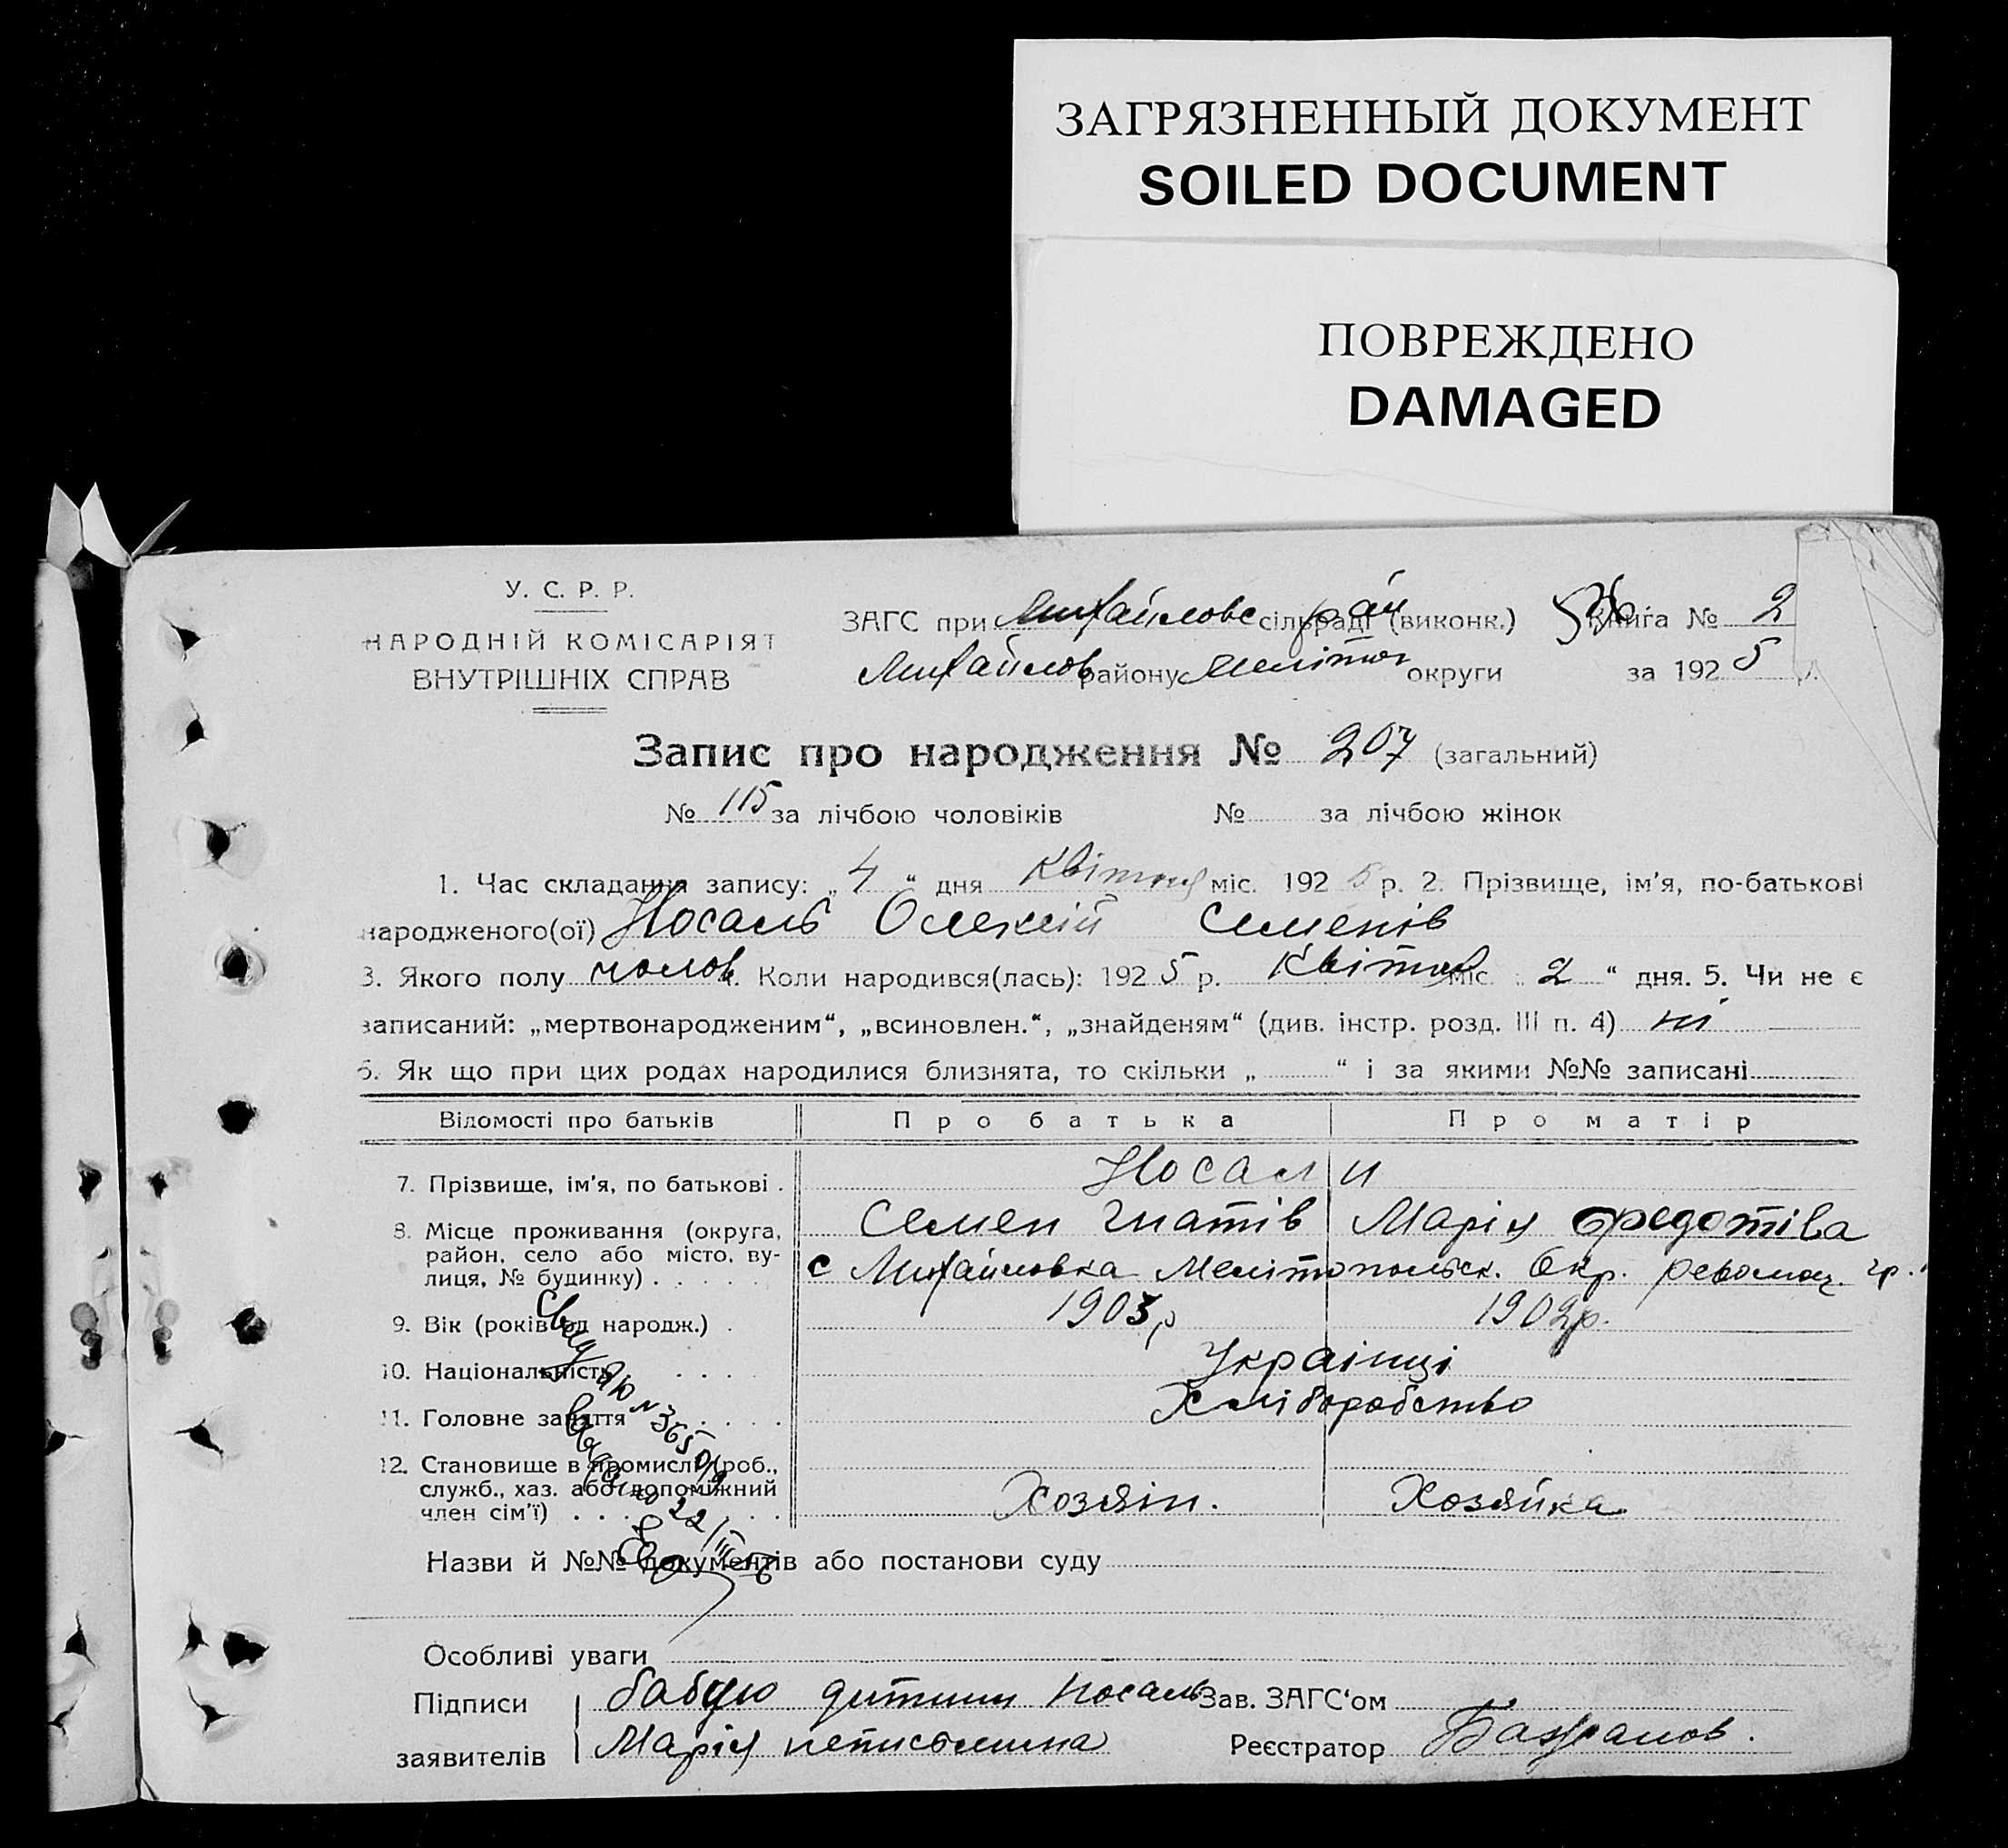 ЗАГРЯЗНЕННЫЙ ДОКУМЕНТ
SOILED DOCUMENT
ПОВРЕЖДЕНО
DAMAGED
У. С. Р. Р.
НАРОДНІЙ КОМІСАРІЯТ
ВНУТРІШНІХ СПРАВ
ЗАГС при Михайловс сільраді рай (виконк.) Книга № 2
Михайлов району Мелітоп округи за 192 5 р.
Запис про народження № 207 (загальний)
№ 115 за лічбою чоловіків № за лічбою жінок
1. Час складання запису: „ 4 “ дня Квітня міс. 192 5 р. 2. Прізвище, ім’я, по-батькові
народженого(ої) Носаль Олексій Семенів
3. Якого полу чолов. Коли народився(лась): 192 5 р. Квітня міс. „ 2 “ дня. 5. Чи не є
записаний: „мертвонародженим“, „всиновлен.“, „знайденям“ (див. інстр. розд. III п. 4) ні
6. Як що при цих родах народилися близнята, то скільки „ “ і за якими №№ записані
Відомості про батьків Про батька Про матір
7. Прізвище, ім’я, по батькові . Носали
Семен Гнатів Марія Федотіва
8. Місце проживання (округа,
район, село або місто, ву-
лиця, № будинку) . . . . . с Михайловка Мелітопольск. Окр.
9. Вік (років од народж.) . 1903р 1902р.
10. Національність . . . . Українці
11. Головне заняття . . . . Хліборобство
12. Становище в промислі (роб.,
служб., хаз. або допоміжний
член сім’ї) . . . . Хозяін. Хозяйка
22/III 56
Назви й №№ документів або постанови суду
Особливі уваги
Підписи бабцю дитини Носаль Зав. ЗАГС‘ом
заявителів Марія неписьмина Реєстратор